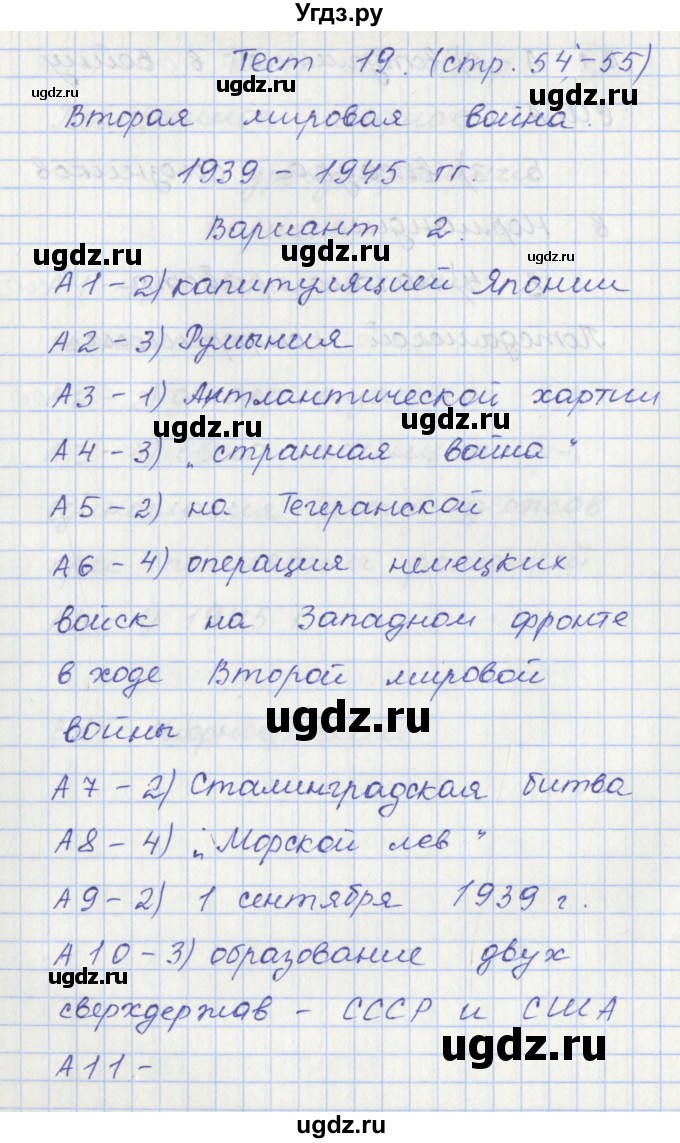 Угдз.ру
Тест 19. (стр. 54-55)
ugdz.ru ugdz.ru ugdz.ru
Вторая мировая война.
1939 - 1945 гг.
Вариант 2.
ugdz.ru ugdz.ru
А1 - 2) капитуляцией Японии
А2 - 3) Румыния
А3 - 1) Антлантической хартии
ugdz.ru ugdz.ru
А4 - 3) „странная война"
А5 - 2) на Тегеранской
А6 - 4) операция немецких
войск на Западном фронте
в ходе Второй мировой
ugdz.ru
войны
А7 - 2) Сталинградская битва
А8 - 4) „Морской лев"
А9 - 2) 1 сентября 1939 г.
А10 - 3) образование двух
ugdz.ru
сверхдержав - СССР и США
ugdz.ru
А11. -
ugdz.ru